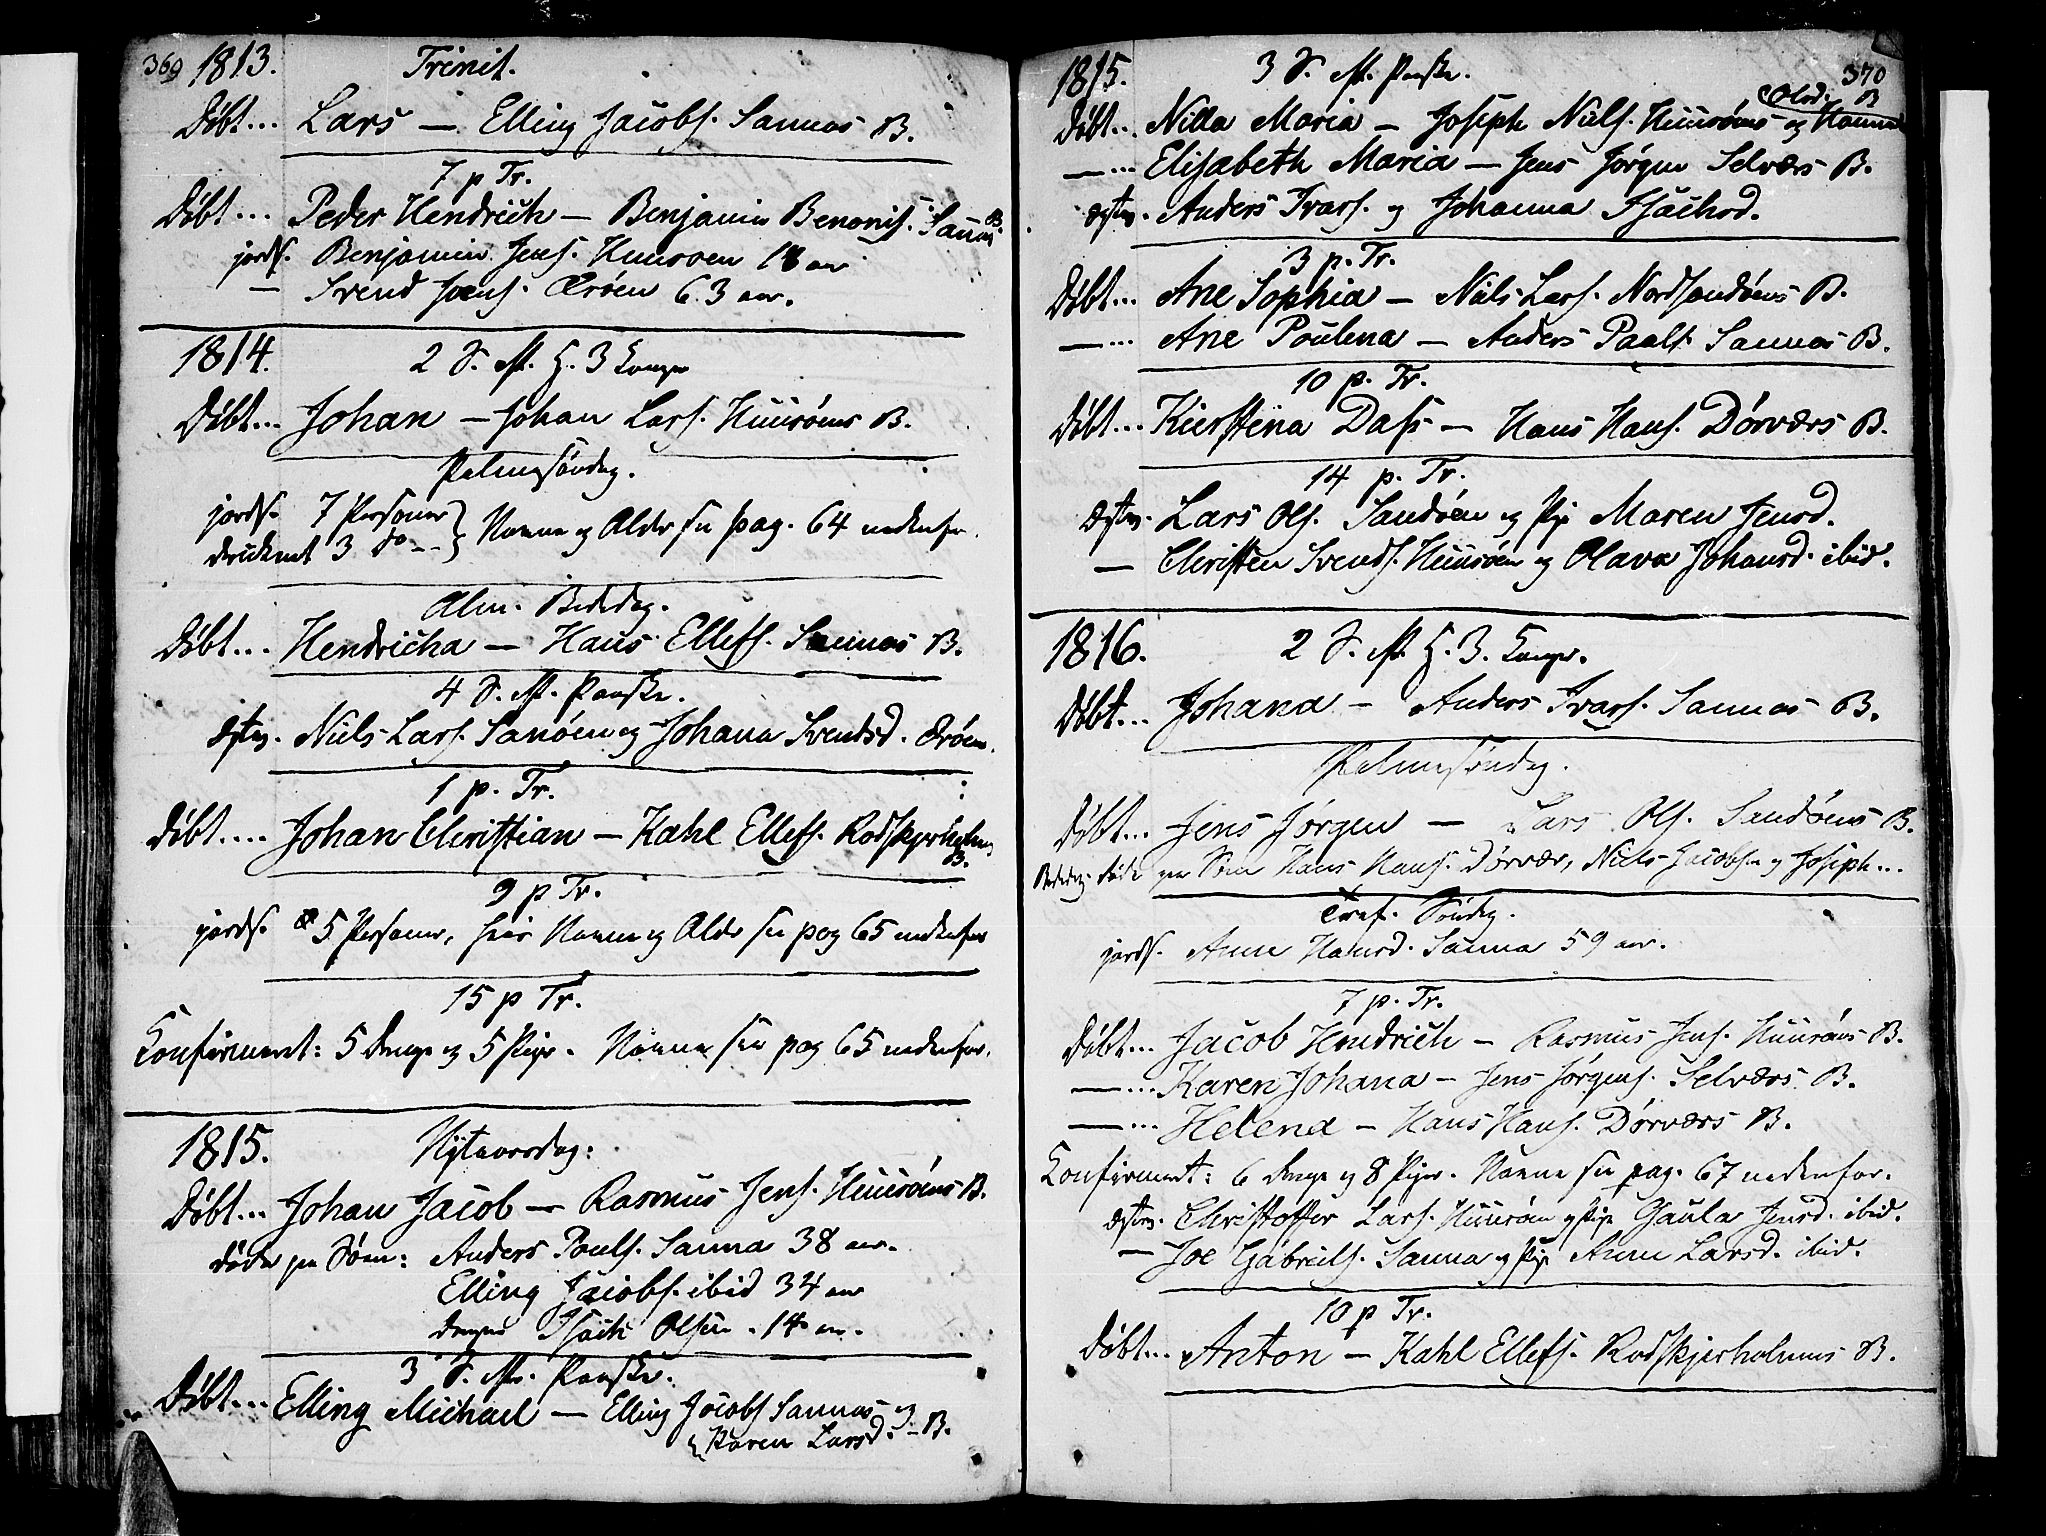 369 1813. Trinit.
Döbt... Lars — Elling Jacobs. Sannas B.
7 p Tr.
Döbt... Peder Hendrich — Benjamin Benonis. Sannas B.
jords. Benjamin Jens. Huusøen 18 aar
— Svend Jens. Ørøen 63 aar.
1814. 2 S. eft. H. 3 Konger
Döbt... Johan — Johan Lars. Huusøens B.
Palmesöndag.
jords. 7 Personer } Navne og Alder see pag. 64 nedenfor.
druknet 3 do -- }
Alm. Bededag.
Döbt... Hendricha — Hans Ellefs. Sannas B.
4 S. eft. Paaske.
Niels Lars. Sanøen og Johana Svendsd. Ørøen.
1 p. Tr.
Döbt.... Johan Christian — Kahl Ellefs. Rodskjerholms B.
9 p Tr.
jords. 5 Personer, hvis Navne og Alder see pag 65 nedenfor
15 p Tr.
Confirmert: 5 Drenge og 5 Piger. Navne see pag 65 nedenfor.
1815. Nytaarsdag:
Döbt... Johan Jacob — Rasmus Jens. Huusøens B.
döde paa Söen: Anders Pouls. Sanna 38 aar.
Elling Jacobs. ibid 34 aar
Drengen Isach Olsen 14 aar.
3 S. eft. Paaske.
Döbt... Elling Michael — Elling Jacobs Sannas og
Karen Larsd. B.
1815. 3 S. eft. Paaske. 370
Olsd: B
Döbt... Nilla Maria — Joseph Niels. Huusøens og Hanna
—... Elisabeth Maria — Jens Jørgen Selværs B.
Anders Ivars. og Johanna Isachsd.
3 p. Tr.
Döbt... Ane Sophia — Niels Lars. Nordsandøens B.
—... Ane Poulena — Anders Pauls. Sannas B.
10 p. Tr.
Döbt... Kierstina Dass — Hans Hans. Dørværs B.
14 p. Tr.
Lars Ols. Sandøen og Pige Maren Jensd.
— Christen Svends. Huusøen og Olava Johansd. ibid.
1816. 2 S. eft H. 3. Konger.
Döbt... Johana — Anders Ivars. Sannas B.
Palmesöndag.
Döbt... Jens Jørgen — Lars Ols. Sandøens B.
Bededag. döde paa Söen Hans Hans. Dørvær, Niels Jacobsen og Joseph...
Söndag.
jords. Anne Hansd. Sanna 59 aar.
7 p. Tr.
Döbt... Jacob Hendrich — Rasmus Jens. Huusøens B.
—... Karen Johana — Jens Jörgens. Selværs B.
—... Helena — Hans Hans. Dørværs B.
Confirmert: 6 Drenge og 8 Piger. Navne see pag. 67 nedenfor.
Christoffer Lars. Huusøen og Pige Gaula Jensd. ibid.
— Joe Gabriels. Sanna og Pige Anne Larsd. ibid.
10 p Tr.
Döbt... Anton — Kahl Ellefs. Rodskjerholmens B.